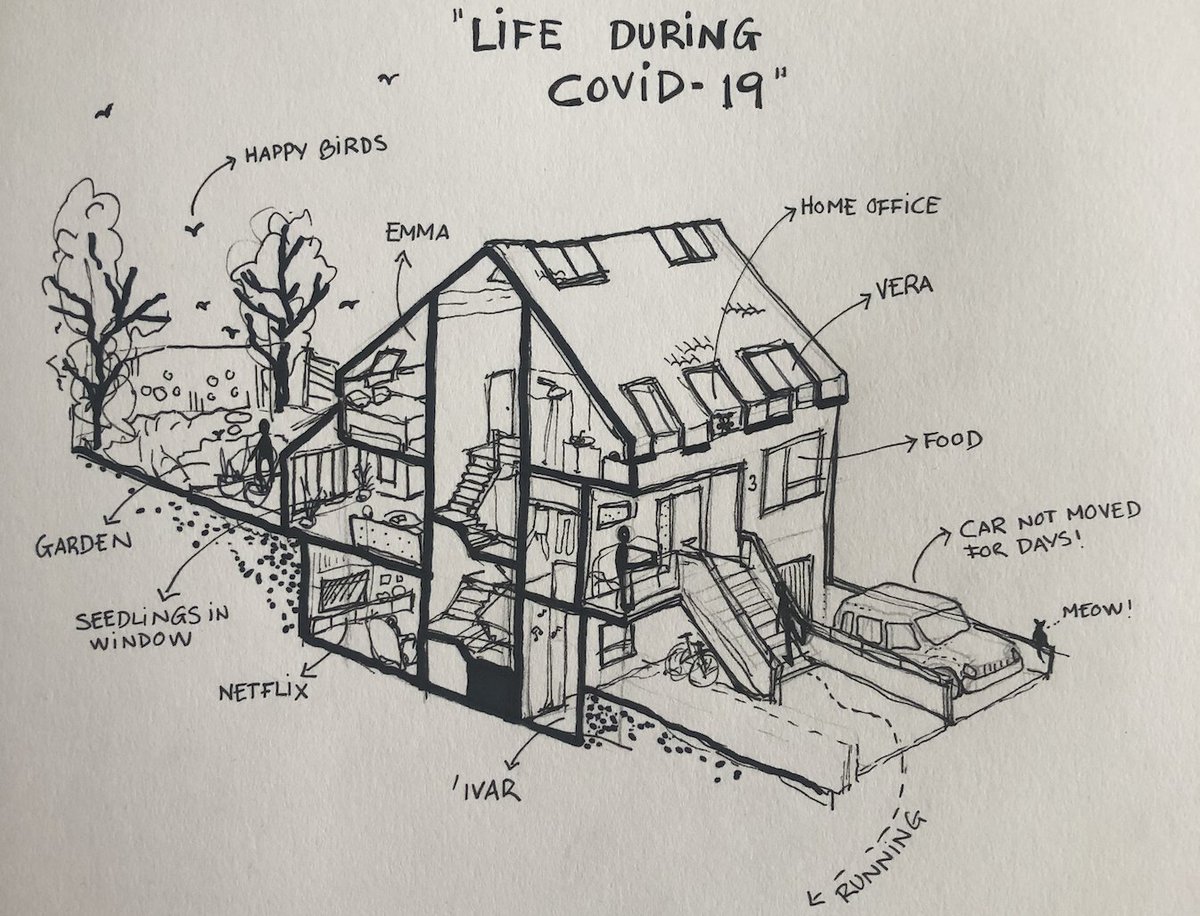 "LiFE DURiNG
COViD-19"
HAPPY BiRDS
EMMA
HOME OFFiCE
VERA
3
FOOD
CAR NOT MOVED
FOR DAYS!
GARDEN
SEEDLiNGS iN
WiNDOW
MEOW!
NETFLiX
'IVAR
RUNNiNG